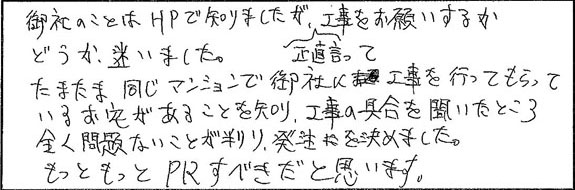 御社のことはHPで知りましたが、工事をお願いするか
どうか迷いました。 正直言って
たまたま同じマンションで御社に工事を行ってもらって
いるお宅があることを知り、工事の具合を聞いたところ
全く問題ないことが判り、発注を決めました。
もっともっとPRすべきだと思います。